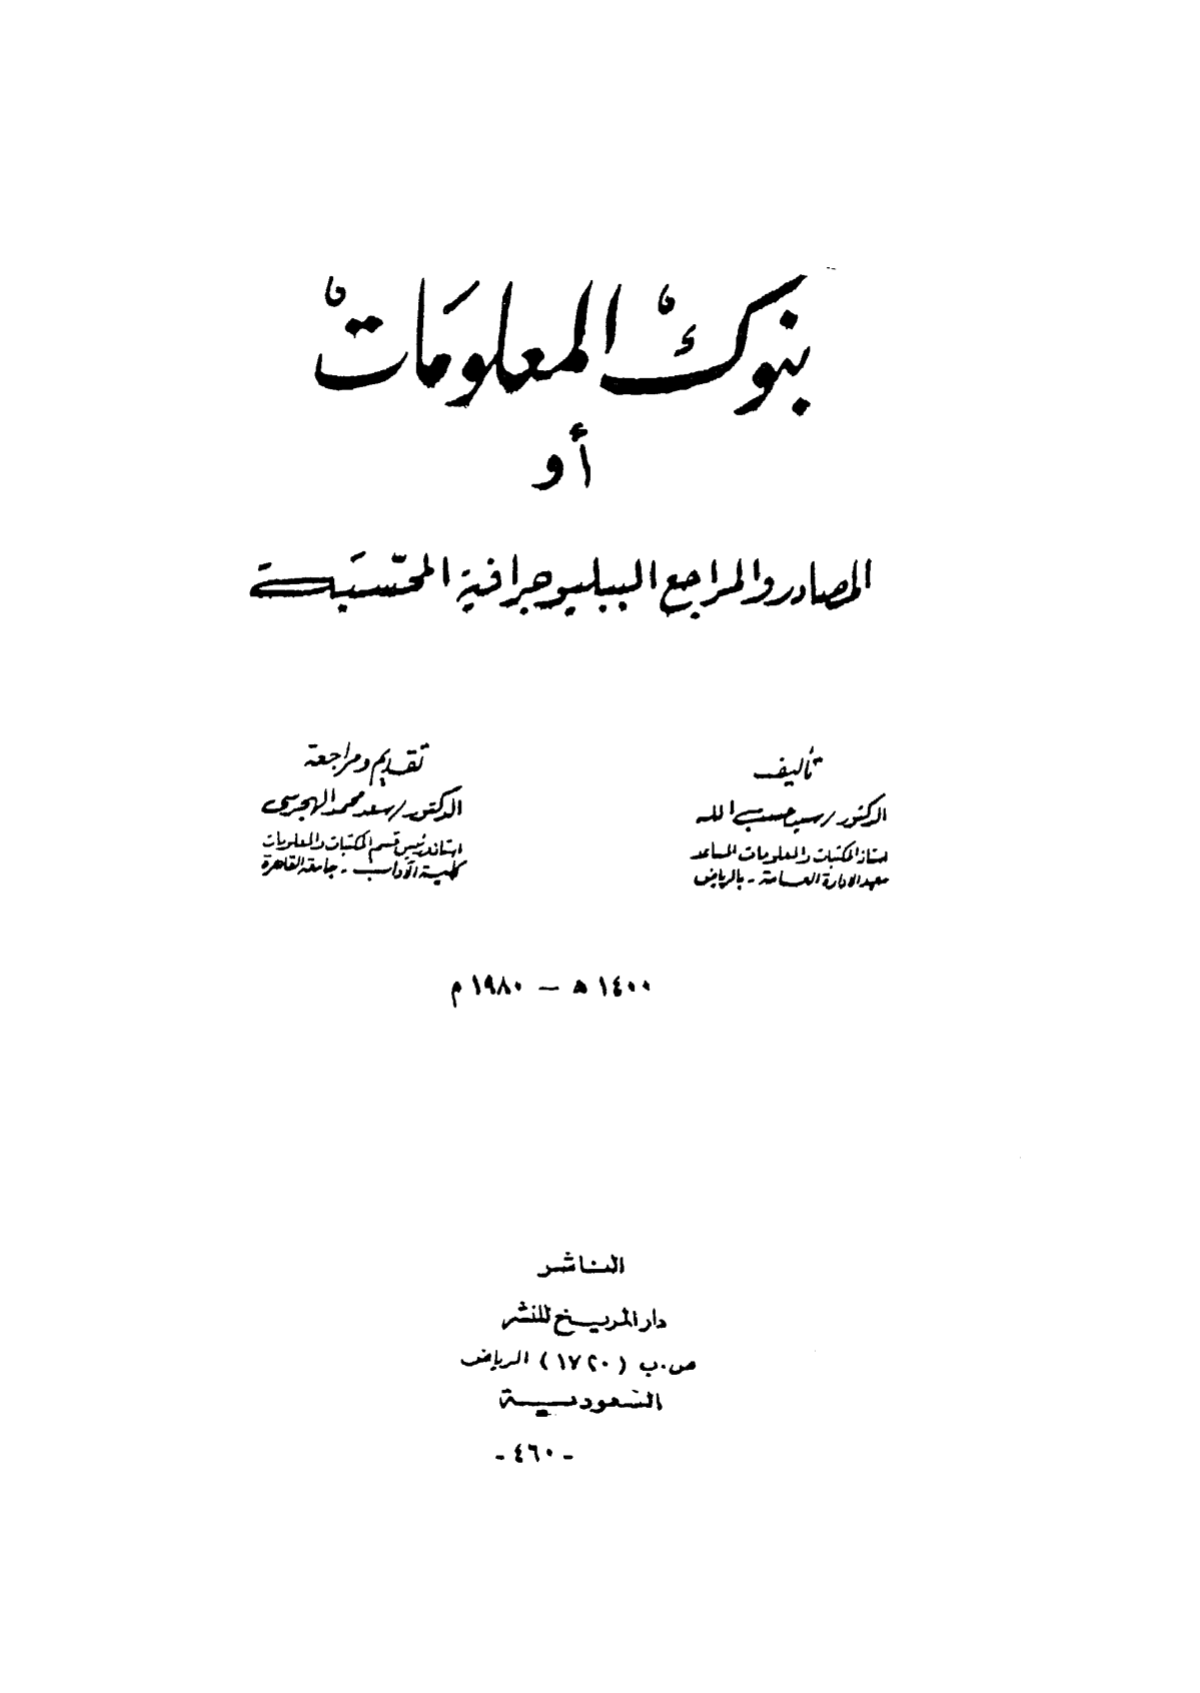 بنوك المعلومات
أو
المصادر والمراجع الببليوجرافية المحسّبة
تأليف
الدكتور / سيد حسب الله
أستاذ المكتبات والمعلومات المساعد
معهد الادارة العامة - بالرياض
تقديم ومراجعة
الدكتور / سعد محمد الهجرسى
استاذ ورئيس قسم المكتبات والمعلومات
كلية الآداب - جامعة القاهرة
١٤٠٠ هـ – ١٩٨٠ م
الناشر
دار المريخ للنشر
ص.ب (١٧٢٠) الرياض
السعودية
- ٤٦٠ -